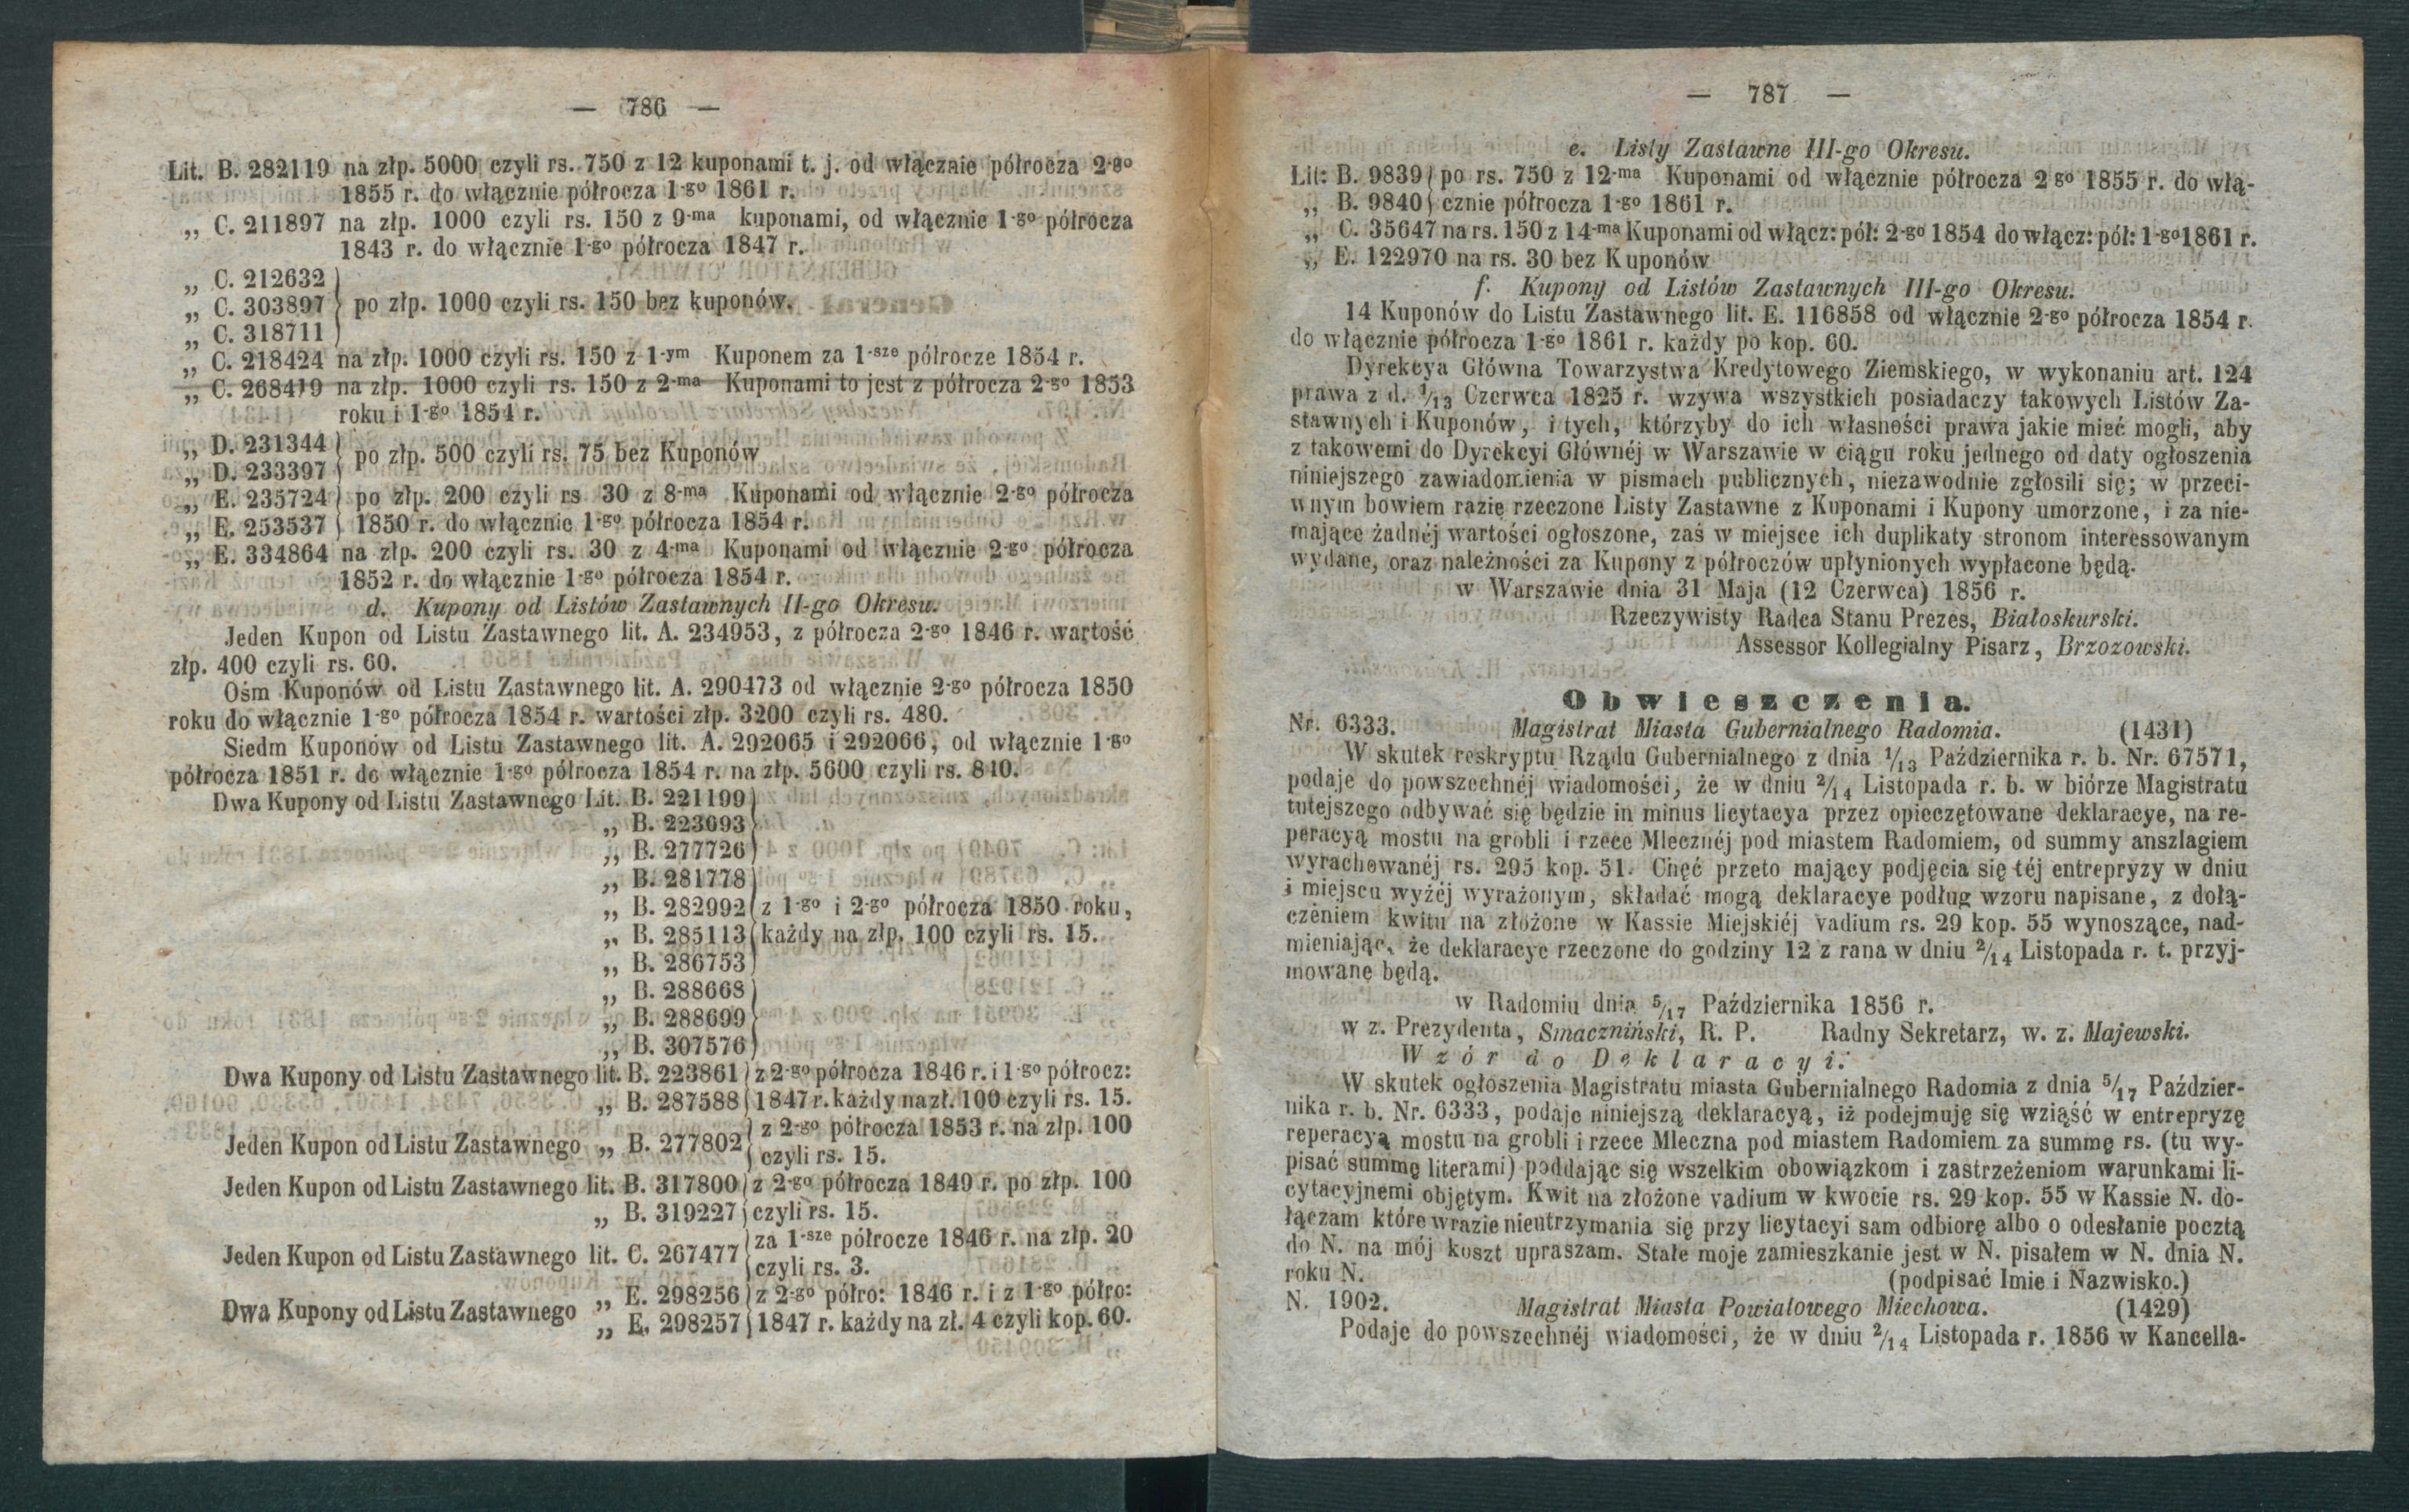 — 786 —
Lit. B. 282119 na złp. 5000 czyli rs. 750 z 12 kuponami t. j. od włącznie półrocza 2-go
1855 r. do włącznie półrocza 1-go 1861 r.
„ C. 211897 na złp. 1000 czyli rs. 150 z 9-ma kuponami, od włącznie 1-go półrocza
1843 r. do włącznie 1-go półrocza 1847 r.
„ C. 212632
„ C. 303897 po złp. 1000 czyli rs. 150 bez kuponów.
„ C. 318711
„ C. 218424 na złp. 1000 czyli rs. 150 z 1-ym Kuponem za 1-sze półrocze 1854 r.
„ C. 268419 na złp. 1000 czyli rs. 150 z 2-ma Kuponami to jest z półrocza 2-go 1853
roku i 1-go 1854 r.
„ D. 231344
„ D. 233397 po złp. 500 czyli rs. 75 bez Kuponów
„ E. 235724 po złp. 200 czyli rs 30 z 8-ma Kuponami od włącznie 2-go półrocza
„ E. 253537 1850 r. do włącznie 1-go półrocza 1854 r.
„ E. 334864 na złp. 200 czyli rs. 30 z 4-ma Kuponami od włącznie 2-go półrocza
1852 r. do włącznie 1-go półrocza 1854 r.
d. Kupony od Listów Zastawnych II-go Okresu.
Jeden Kupon od Listu Zastawnego lit. A. 234953, z półrocza 2-go 1846 r. wartość
złp. 400 czyli rs. 60.
Ośm Kuponów od Listu Zastawnego lit. A. 290473 od włącznie 2-go półrocza 1850
roku do włącznie 1-go półrocza 1854 r. wartości złp. 3200 czyli rs. 480.
Siedm Kuponów od Listu Zastawnego lit. A. 292065 i 292066, od włącznie 1-go
półrocza 1851 r. do włącznie 1-go półrocza 1854 r. na złp. 5600 czyli rs. 840.
Dwa Kupony od Listu Zastawnego Lit. B. 221199
„ B. 223693
„ B. 277726
„ B. 281778
„ B. 282992 z 1-go i 2-go półrocza 1850 roku,
„ B. 285113 każdy na złp. 100 czyli rs. 15.
„ B. 286753
„ B. 288668
„ B. 288699
„ B. 307576
Dwa Kupony od Listu Zastawnego lit. B. 223861 z 2-go półrocza 1846 r. i 1-go półrocz:
„ B. 287588 1847 r. każdy na zł. 100 czyli rs. 15.
Jeden Kupon od Listu Zastawnego „ B. 277802 z 2-go półrocza 1853 r. na złp. 100
czyli rs. 15.
Jeden Kupon od Listu Zastawnego lit. B. 317800 z 2-go półrocza 1849 r. po złp. 100
„ B. 319227 czyli rs. 15.
Jeden Kupon od Listu Zastawnego lit. C. 267477 za 1-sze półrocze 1846 r. na złp. 20
czyli rs. 3.
Dwa Kupony od Listu Zastawnego „ E. 298256 z 2-go półro: 1846 r. i z 1-go półro:
„ E. 298257 1847 r. każdy na zł. 4 czyli kop. 60.
— 787 —
e. Listy Zastawne III-go Okresu.
Lit: B. 9839 po rs. 750 z 12-ma Kuponami od włącznie półrocza 2 go 1855 r. do włą-
„ B. 9840 cznie półrocza 1-go 1861 r.
„ C. 35647 na rs. 150 z 14-ma Kuponami od włącz: pół: 2-go 1854 do włącz: pół: 1-go 1861 r.
„ E. 122970 na rs. 30 bez Kuponów
f. Kupony od Listów Zastawnych III-go Okresu.
14 Kuponów do Listu Zastawnego lit. E. 116858 od włącznie 2-go półrocza 1854 r.
do włącznie półrocza 1-go 1861 r. każdy po kop. 60.
Dyrekcya Główna Towarzystwa Kredytowego Ziemskiego, w wykonaniu art. 124
prawa z d. 1/13 Czerwca 1825 r. wzywa wszystkich posiadaczy takowych Listów Za-
stawnych i Kuponów, i tych, którzyby do ich własności prawa jakie mieć mogli, aby
z takowemi do Dyrekcyi Głównéj w Warszawie w ciągu roku jednego od daty ogłoszenia
niniejszego zawiadomienia w pismach publicznych, niezawodnie zgłosili się; w przeci-
wnym bowiem razie rzeczone Listy Zastawne z Kuponami i Kupony umorzone, i za nie-
mające żadnéj wartości ogłoszone, zaś w miejsce ich duplikaty stronom interessowanym
wydane, oraz należności za Kupony z półroczów upłynionych wypłacone będą.
w Warszawie dnia 31 Maja (12 Czerwca) 1856 r.
Rzeczywisty Radca Stanu Prezes, Białoskurski.
Assessor Kollegialny Pisarz, Brzozowski.
Obwieszczenia.
Nr. 6333. Magistrat Miasta Gubernialnego Radomia. (1431)
W skutek reskryptu Rządu Gubernialnego z dnia 1/13 Października r. b. Nr. 67571,
podaje do powszechnéj wiadomości, że w dniu 2/14 Listopada r. b. w biórze Magistratu
tutejszego odbywać się będzie in minus licytacya przez opieczętowane deklaracye, na re-
peracyą mostu na grobli i rzece Mlecznéj pod miastem Radomiem, od summy anszlagiem
wyrachowanéj rs. 295 kop. 51. Chęć przeto mający podjęcia się téj entrepryzy w dniu
i miejscu wyżéj wyrażonym, składać mogą deklaracye podług wzoru napisane, z dołą-
czeniem kwitu na złożone w Kassie Miejskiéj vadium rs. 29 kop. 55 wynoszące, nad-
mieniając, że deklaracye rzeczone do godziny 12 z rana w dniu 2/14 Listopada r. t. przyj-
mowane będą.
w Radomiu dnia 5/17 Października 1856 r.
w z. Prezydenta, Smaczniński, R. P. Radny Sekretarz, w. z. Majewski.
Wzór do Deklaracyi.
W skutek ogłoszenia Magistratu miasta Gubernialnego Radomia z dnia 5/17 Paździer-
nika r. b. Nr. 6333, podaje niniejszą deklaracyą, iż podejmuję się wziąść w entrepryzę
reperacyą mostu na grobli i rzece Mleczna pod miastem Radomiem za summę rs. (tu wy-
pisać summę literami) poddając się wszelkim obowiązkom i zastrzeżeniom warunkami li-
cytacyjnemi objętym. Kwit na złożone vadium w kwocie rs. 29 kop. 55 w Kassie N. do-
łączam które w razie nieutrzymania się przy licytacyi sam odbiorę albo o odesłanie pocztą
do N. na mój koszt upraszam. Stałe moje zamieszkanie jest w N. pisałem w N. dnia N.
roku N. (podpisać Imie i Nazwisko.)
N. 1902. Magistrat Miasta Powiatowego Miechowa. (1429)
Podaje do powszechnéj wiadomości, że w dniu 2/14 Listopada r. 1856 w Kancella-